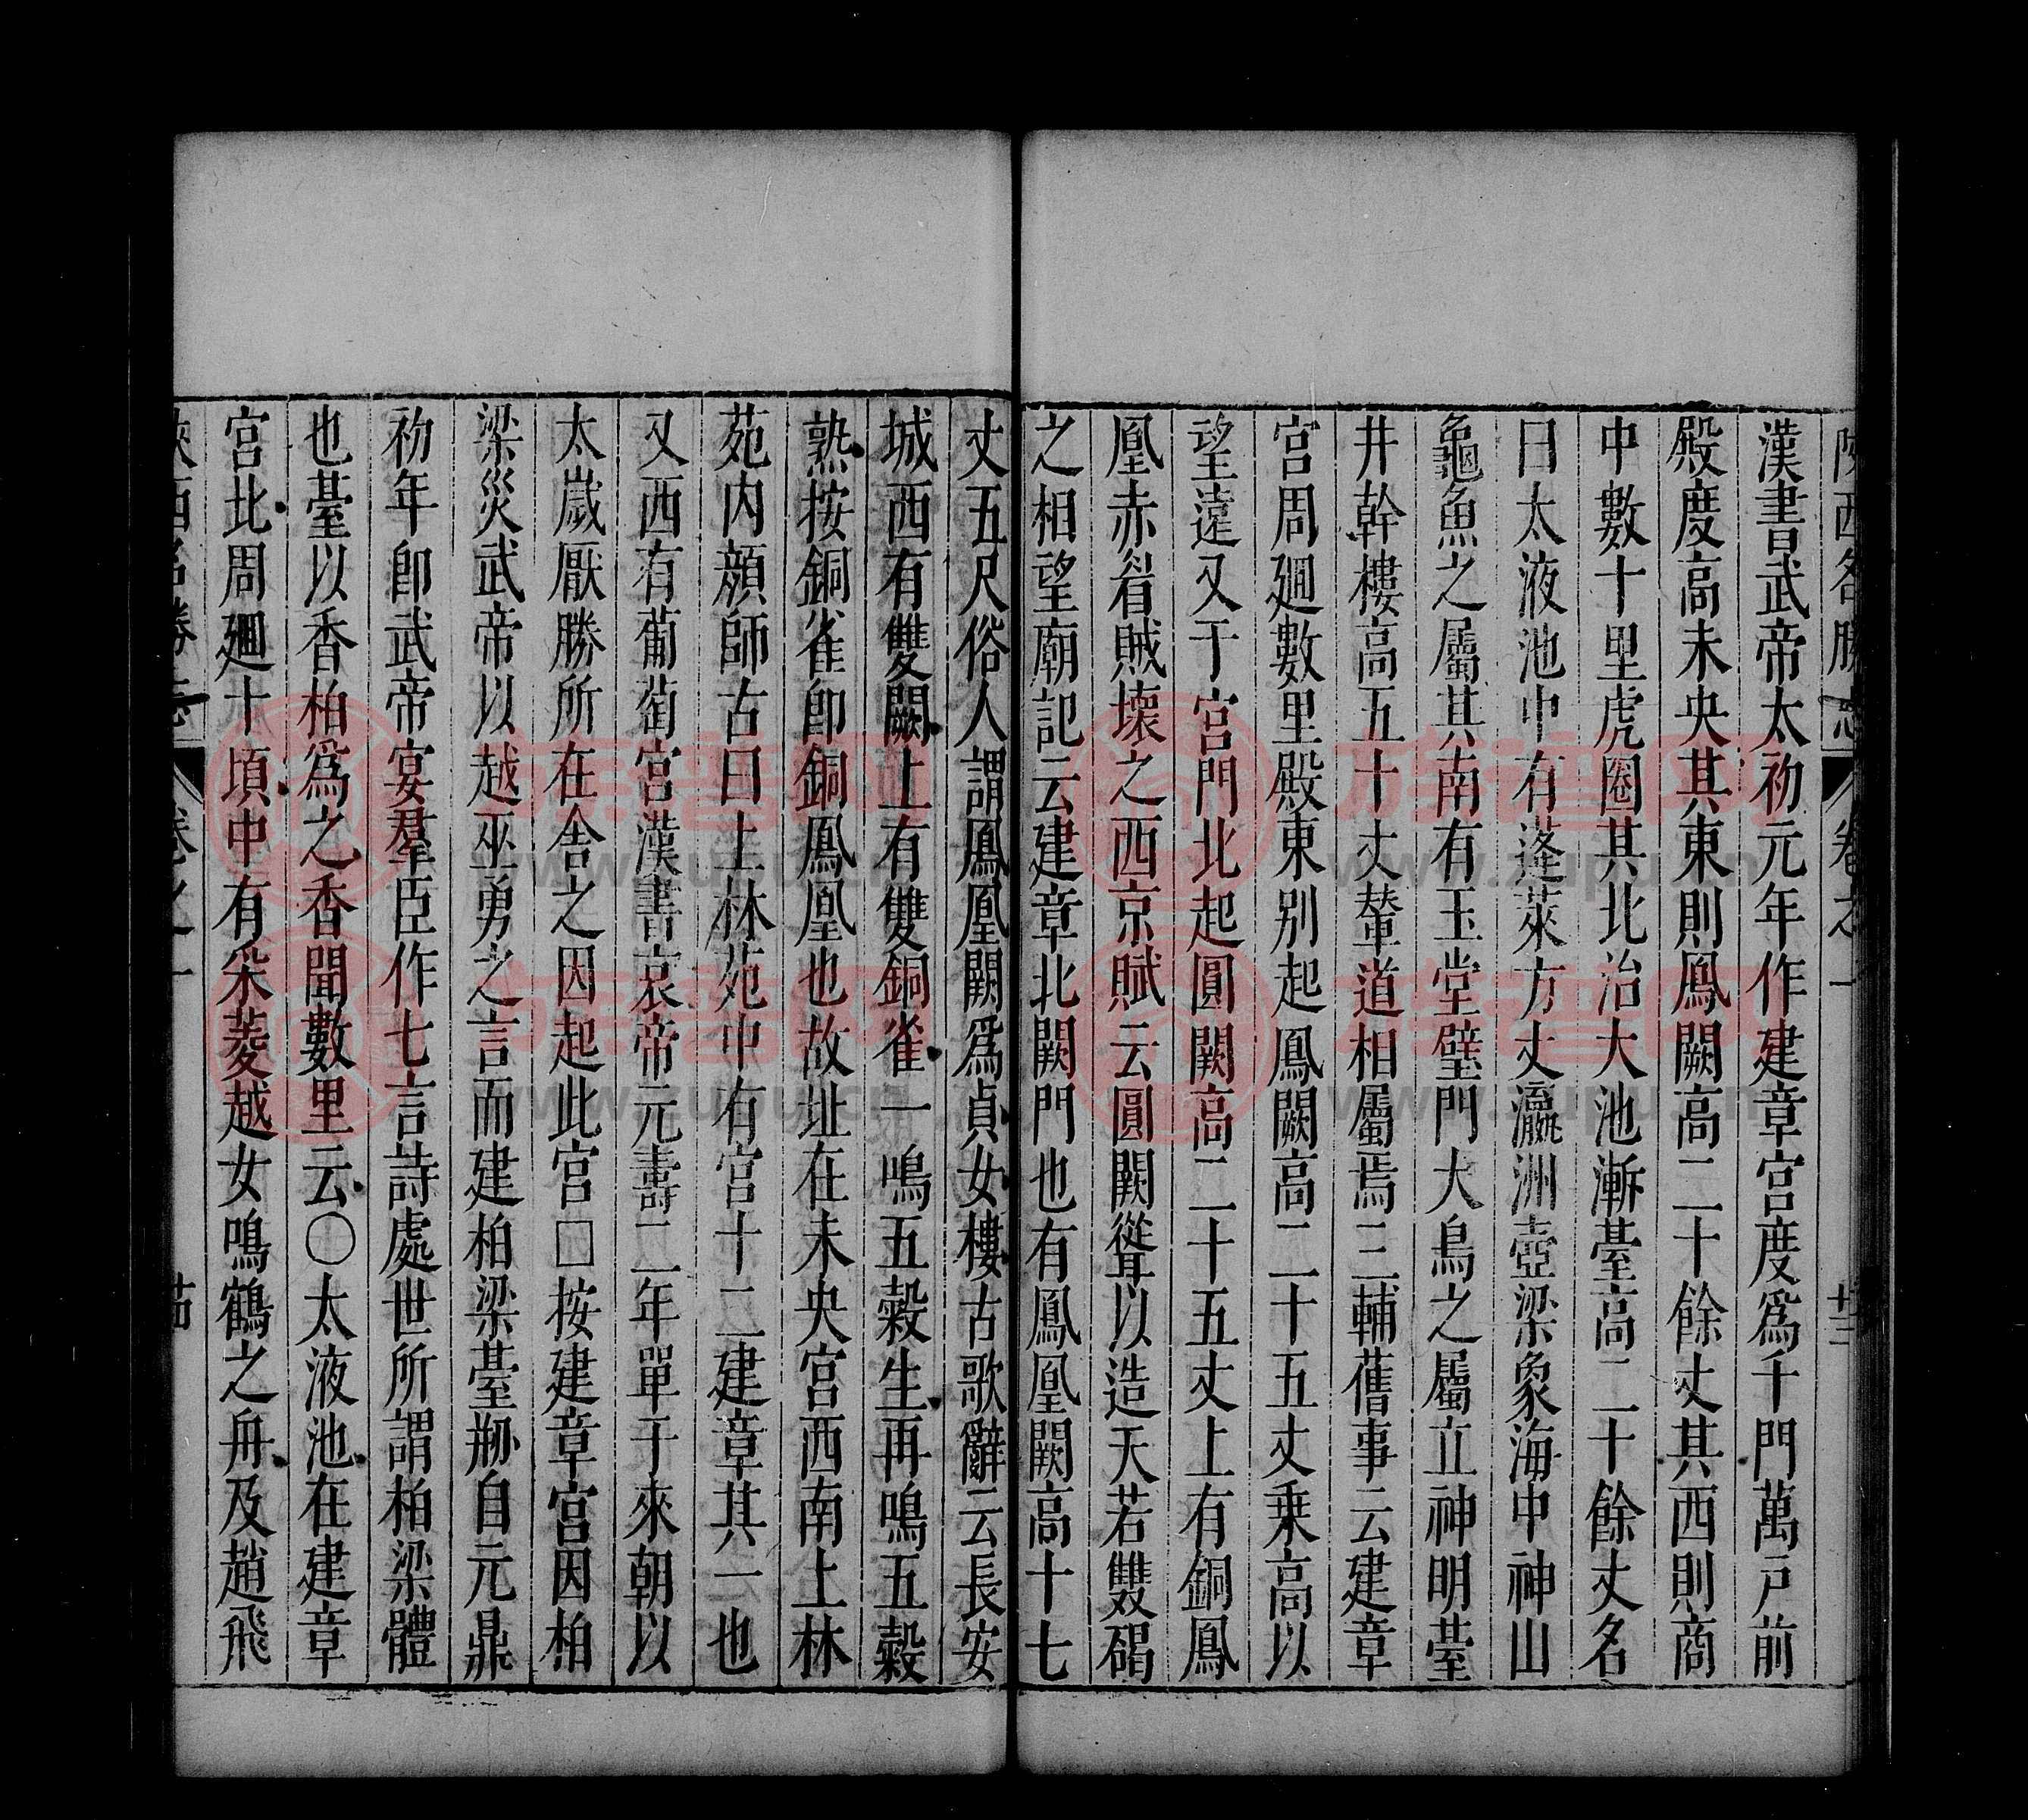 陝西名勝志 卷之一 廿三
漢書武帝太初元年作建章宮度爲千門萬戸前
殿度高未央其東則鳳闕高二十餘丈其西則商
中數十里虎圈其北治大池漸臺高二十餘丈名
曰太液池中有蓬萊方丈瀛洲壺梁象海中神山
龜魚之屬其南有玉堂璧門大鳥之屬立神明臺
井幹樓高五十丈輦道相屬焉三輔舊事云建章
宮周迴數里殿東别起鳳闕高二十五丈乗高以
望遠又于宮門北起圓闕高二十五丈上有銅鳳
凰赤眉賊壞之西京賦云圓闕聳以造天若雙碣
之相望廟記云建章北闕門也有鳳凰闕高十七
丈五尺俗人謂鳳凰闕爲貞女樓古歌辭云長安
城西有雙闕上有雙銅雀一鳴五穀生再鳴五穀
熟按銅雀卽銅鳳凰也故址在未央宮西南上林
苑内顔師古曰上林苑中有宮十二建章其一也
又西有葡萄宮漢書哀帝元壽二年單于來朝以
太歲厭勝所在舍之因起此宮□按建章宮因柏
梁災武帝以越巫勇之言而建柏梁臺剏自元鼎
初年卽武帝宴羣臣作七言詩處世所謂柏梁體
也臺以香柏爲之香聞數里云○太液池在建章
宮北周廻十頃中有采菱越女鳴鶴之舟及趙飛
陝西名勝志 卷之一 廿四